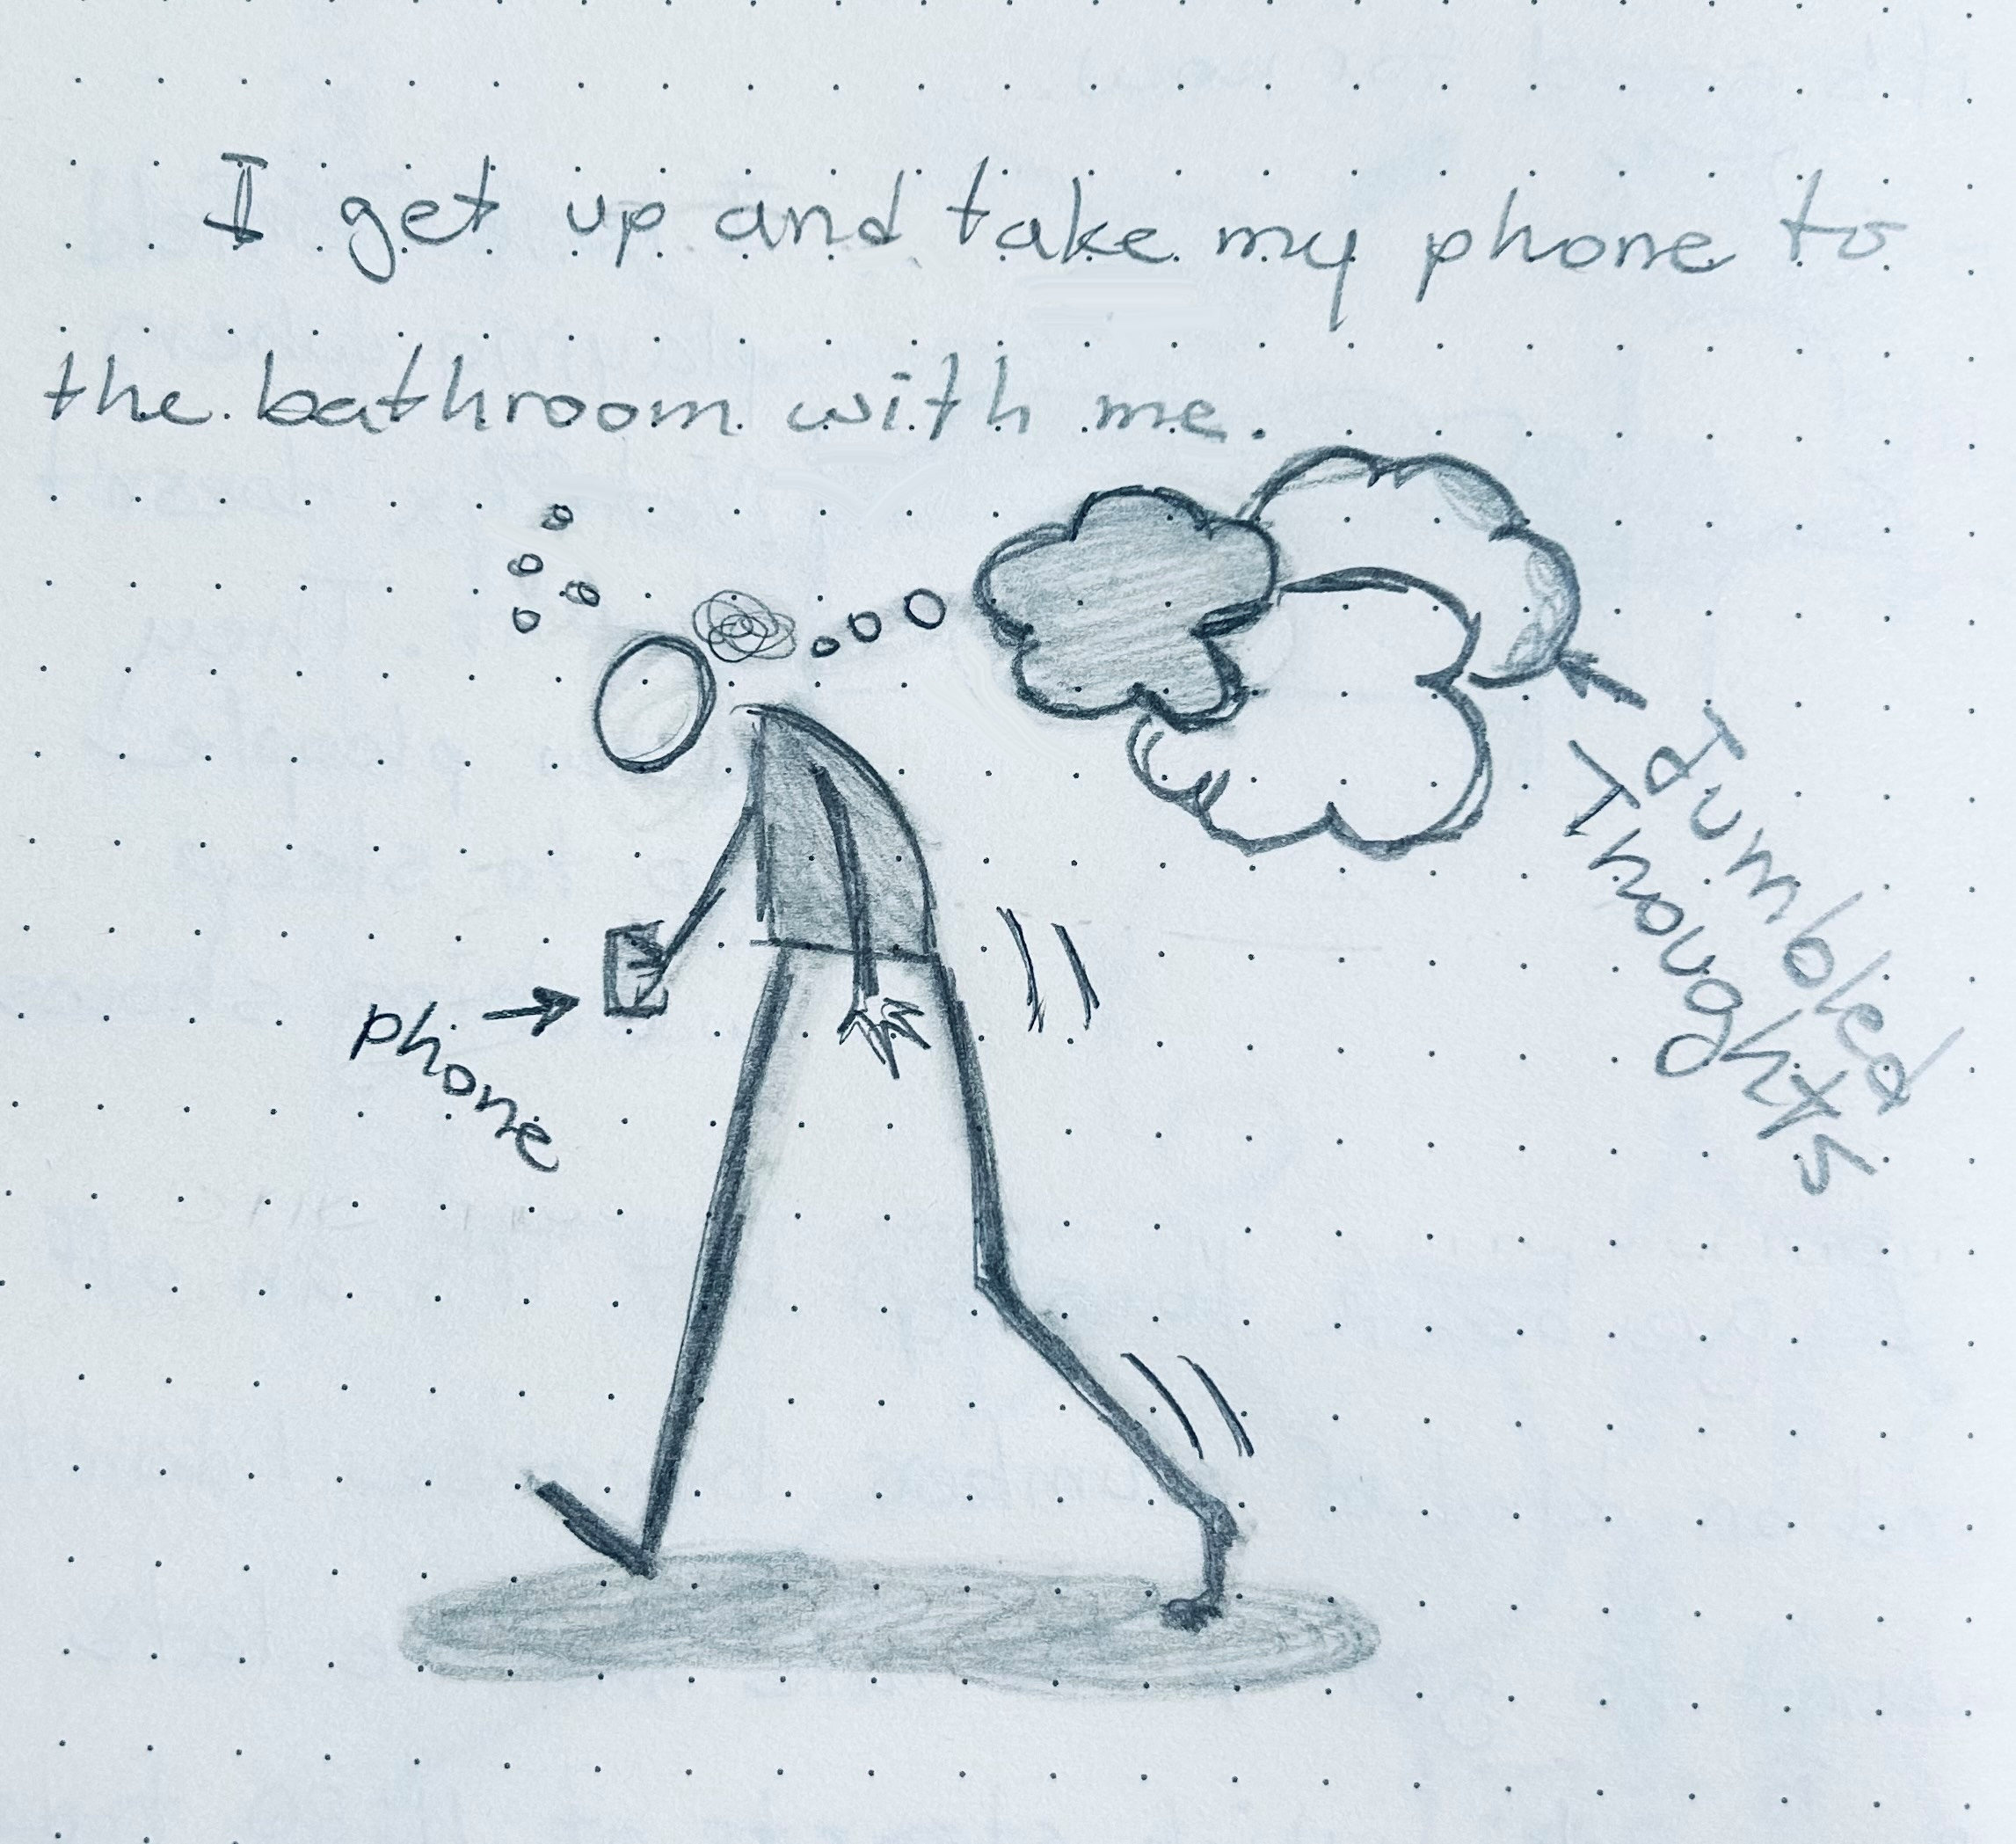 I get up and take my phone to
the bathroom with me.
phone
Jumbled
Thoughts